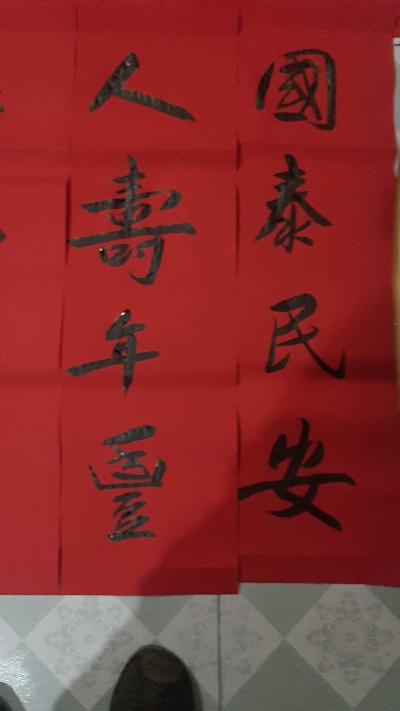 國泰民安
人壽年豐